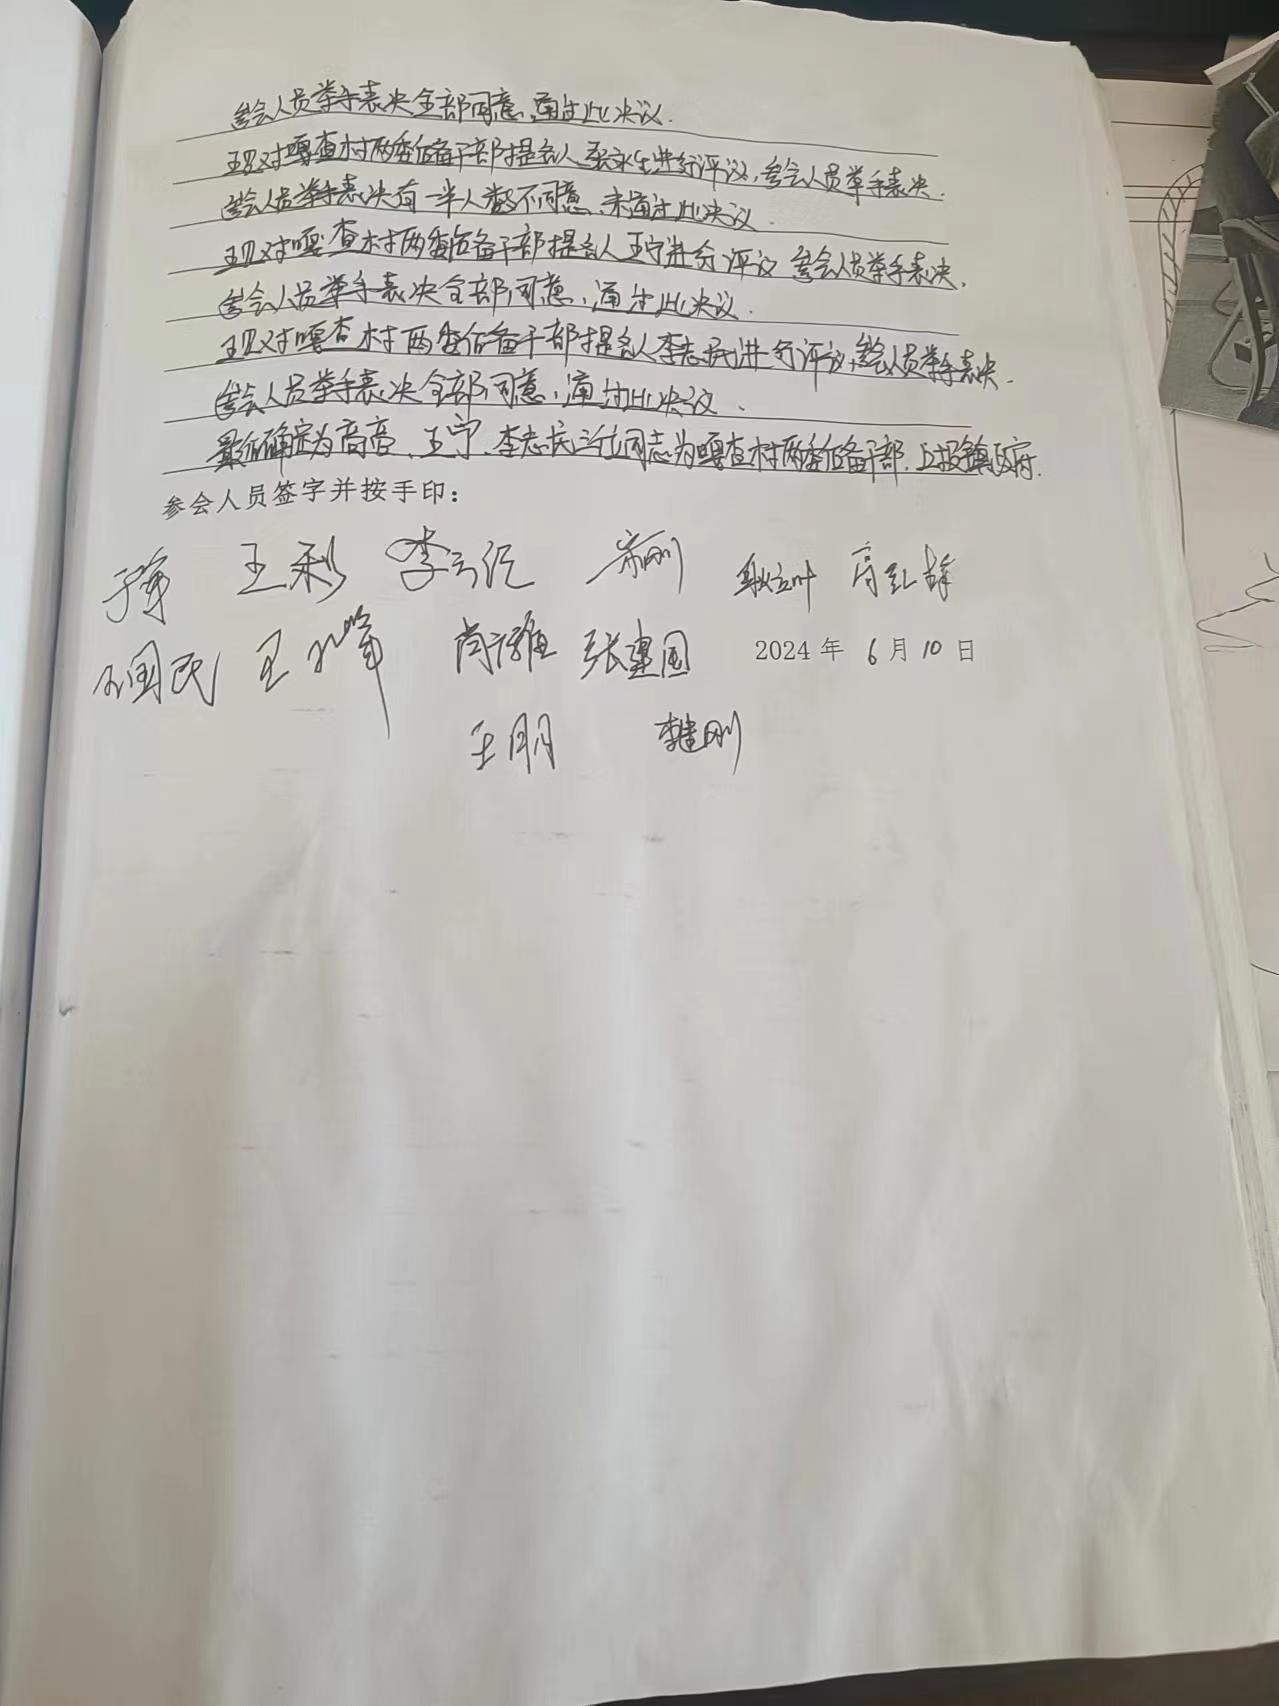 参会人员举手表决全部同意,通过此决议.
现对嘎查村两委后备干部提名人张永生进行评议,参会人员举手表决.
参会人员举手表决有一半人数不同意,未通过此决议.
现对嘎查村两委后备干部提名人王宁进行评议 参会人员举手表决.
参会人员举手表决全部同意,通过此决议.
现对嘎查村两委后备干部提名人李志民进行评议,参会人员举手表决.
参会人员举手表决全部同意,通过此决议.
最后确定为高亮、王宁、李志民三位同志为嘎查村两委后备干部.上报镇政府.
参会人员签字并按手印:
王彩
国民 王 尚雅 张建国 2024年 6月10日
王朋 李建刚